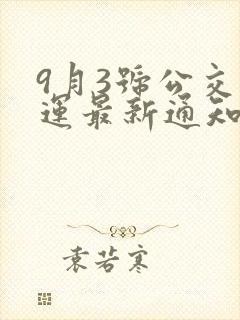 9月3號公交
運最新通知
袁若寒